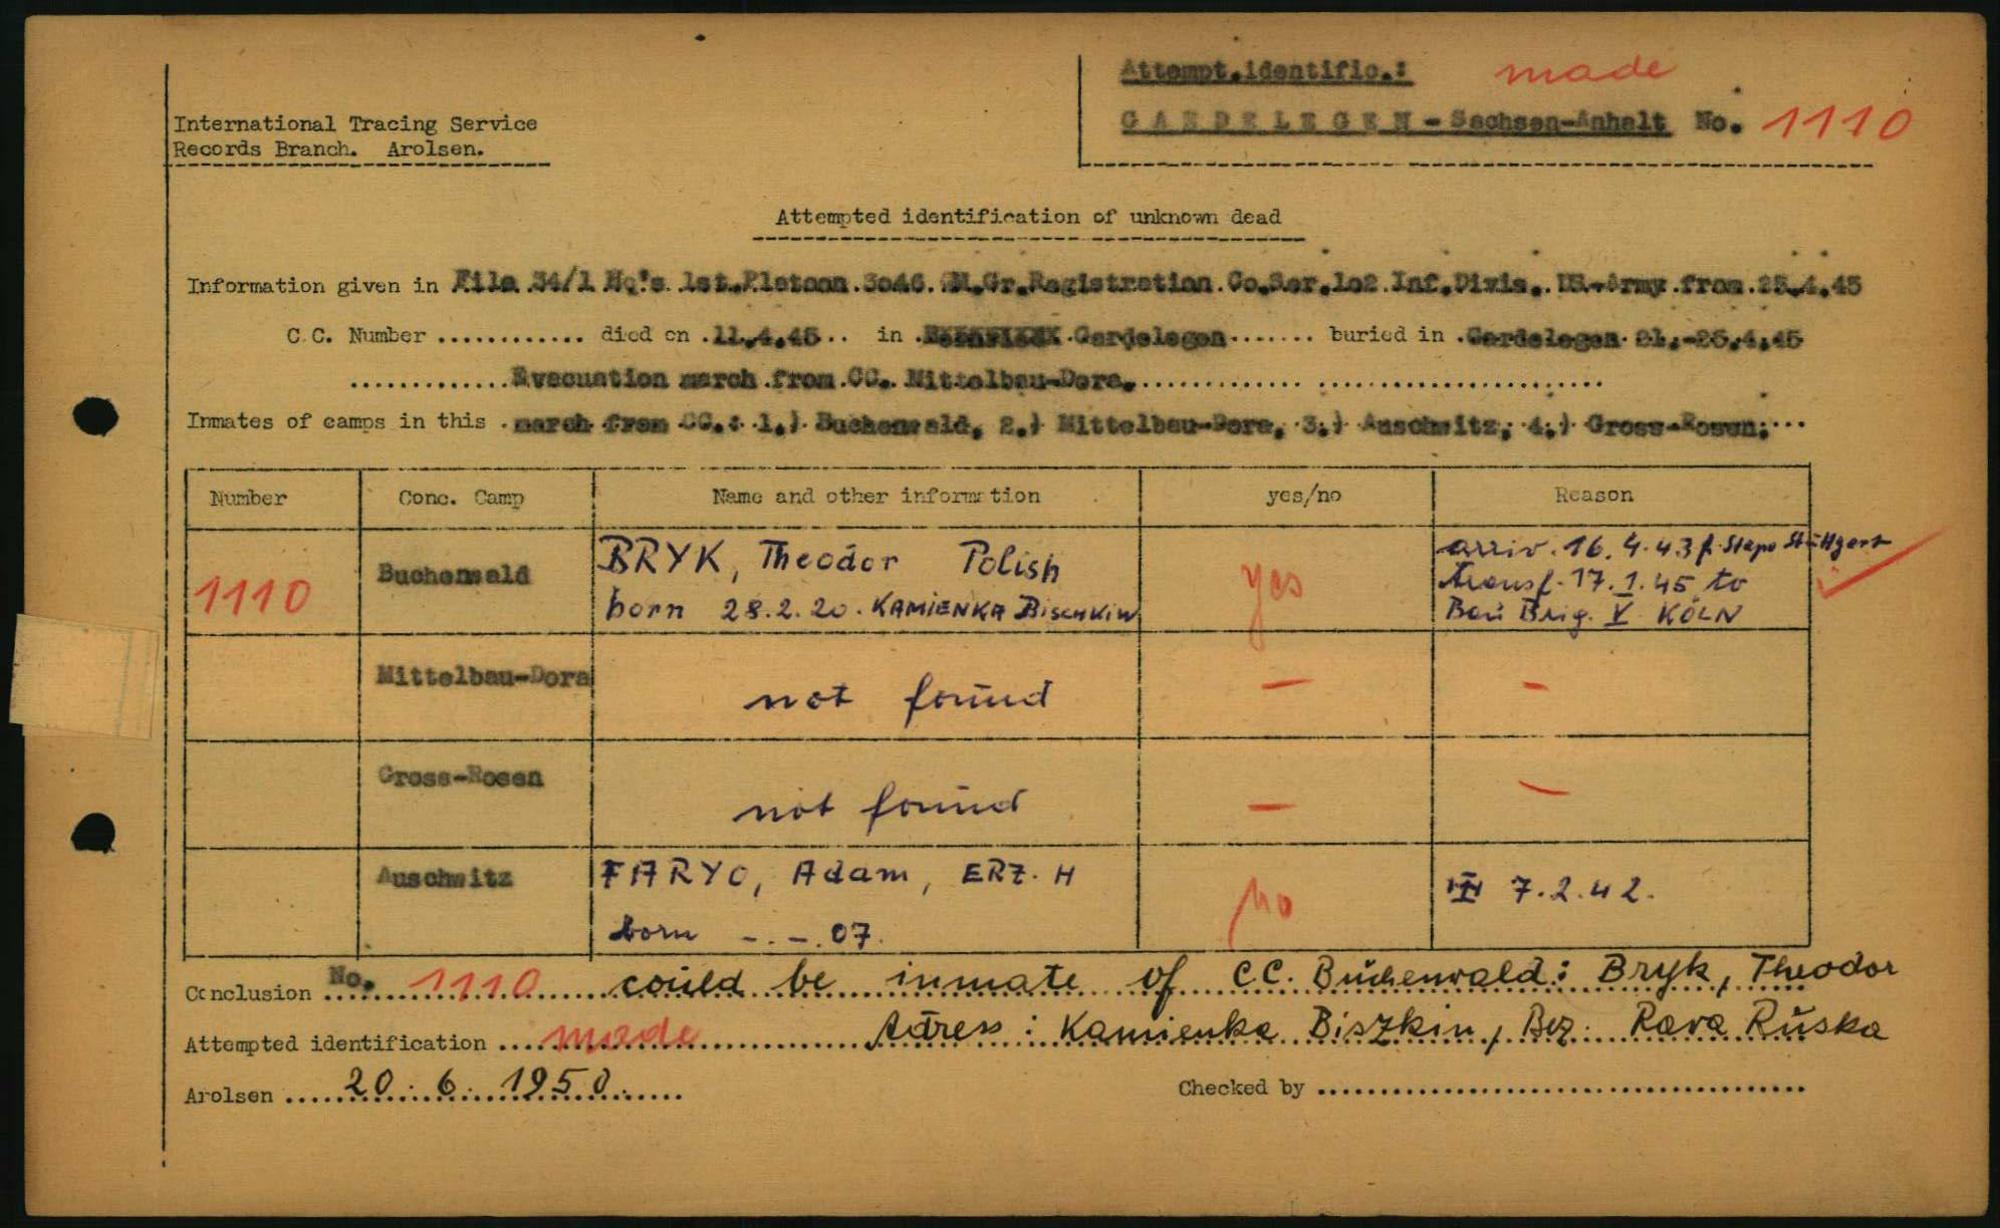 Attempt.identific.: made
International Tracing Service
GARDELEGEN - Sachsen-Anhalt No. 1110
Records Branch. Arolsen.
Attempted identification of unknown dead
Information given in File 34/1 Hq's 1st.Platoon.3o46. .Gr.Registration.Co.Ser.1o2 Inf.Divis. US.-Army.from.25.4.45
C.C. Number ............ died on .11.4.45.. in Gardelegen....... buried in .Gardelegen 21.-25.4.45
.............Evacuation march from CC. Mittelbau-Dora.............. ......................
Inmates of camps in this .march from CC.: 1.) Buchenwald, 2.) Mittelbau-Dora, 3.) Auschwitz, 4.) Gross-Rosen;...
Number Conc. Camp Name and other information yes/no Reason
1110 Buchenwald BRYK, Theodor Polish yes arriv. 16.4.43 f. Stapo Stuttgart
born 28.2.20. KAMIENKA Bischkiw transf. 17.1.45 to
Bau Brig. V KÖLN
Mittelbau-Dora not found — —
Gross-Rosen not found — —
Auschwitz FARYO, Adam, ERZ. H no 7.2.42.
born -.-.07.
Conclusion No. 1110 could be inmate of C.C. Buchenwald: Bryk, Theodor
Attempted identification ....made.............. Adress: Kamienka Biszkin, Bez. Rava Ruska
Arolsen ....20.6.1950...... Checked by ......................................